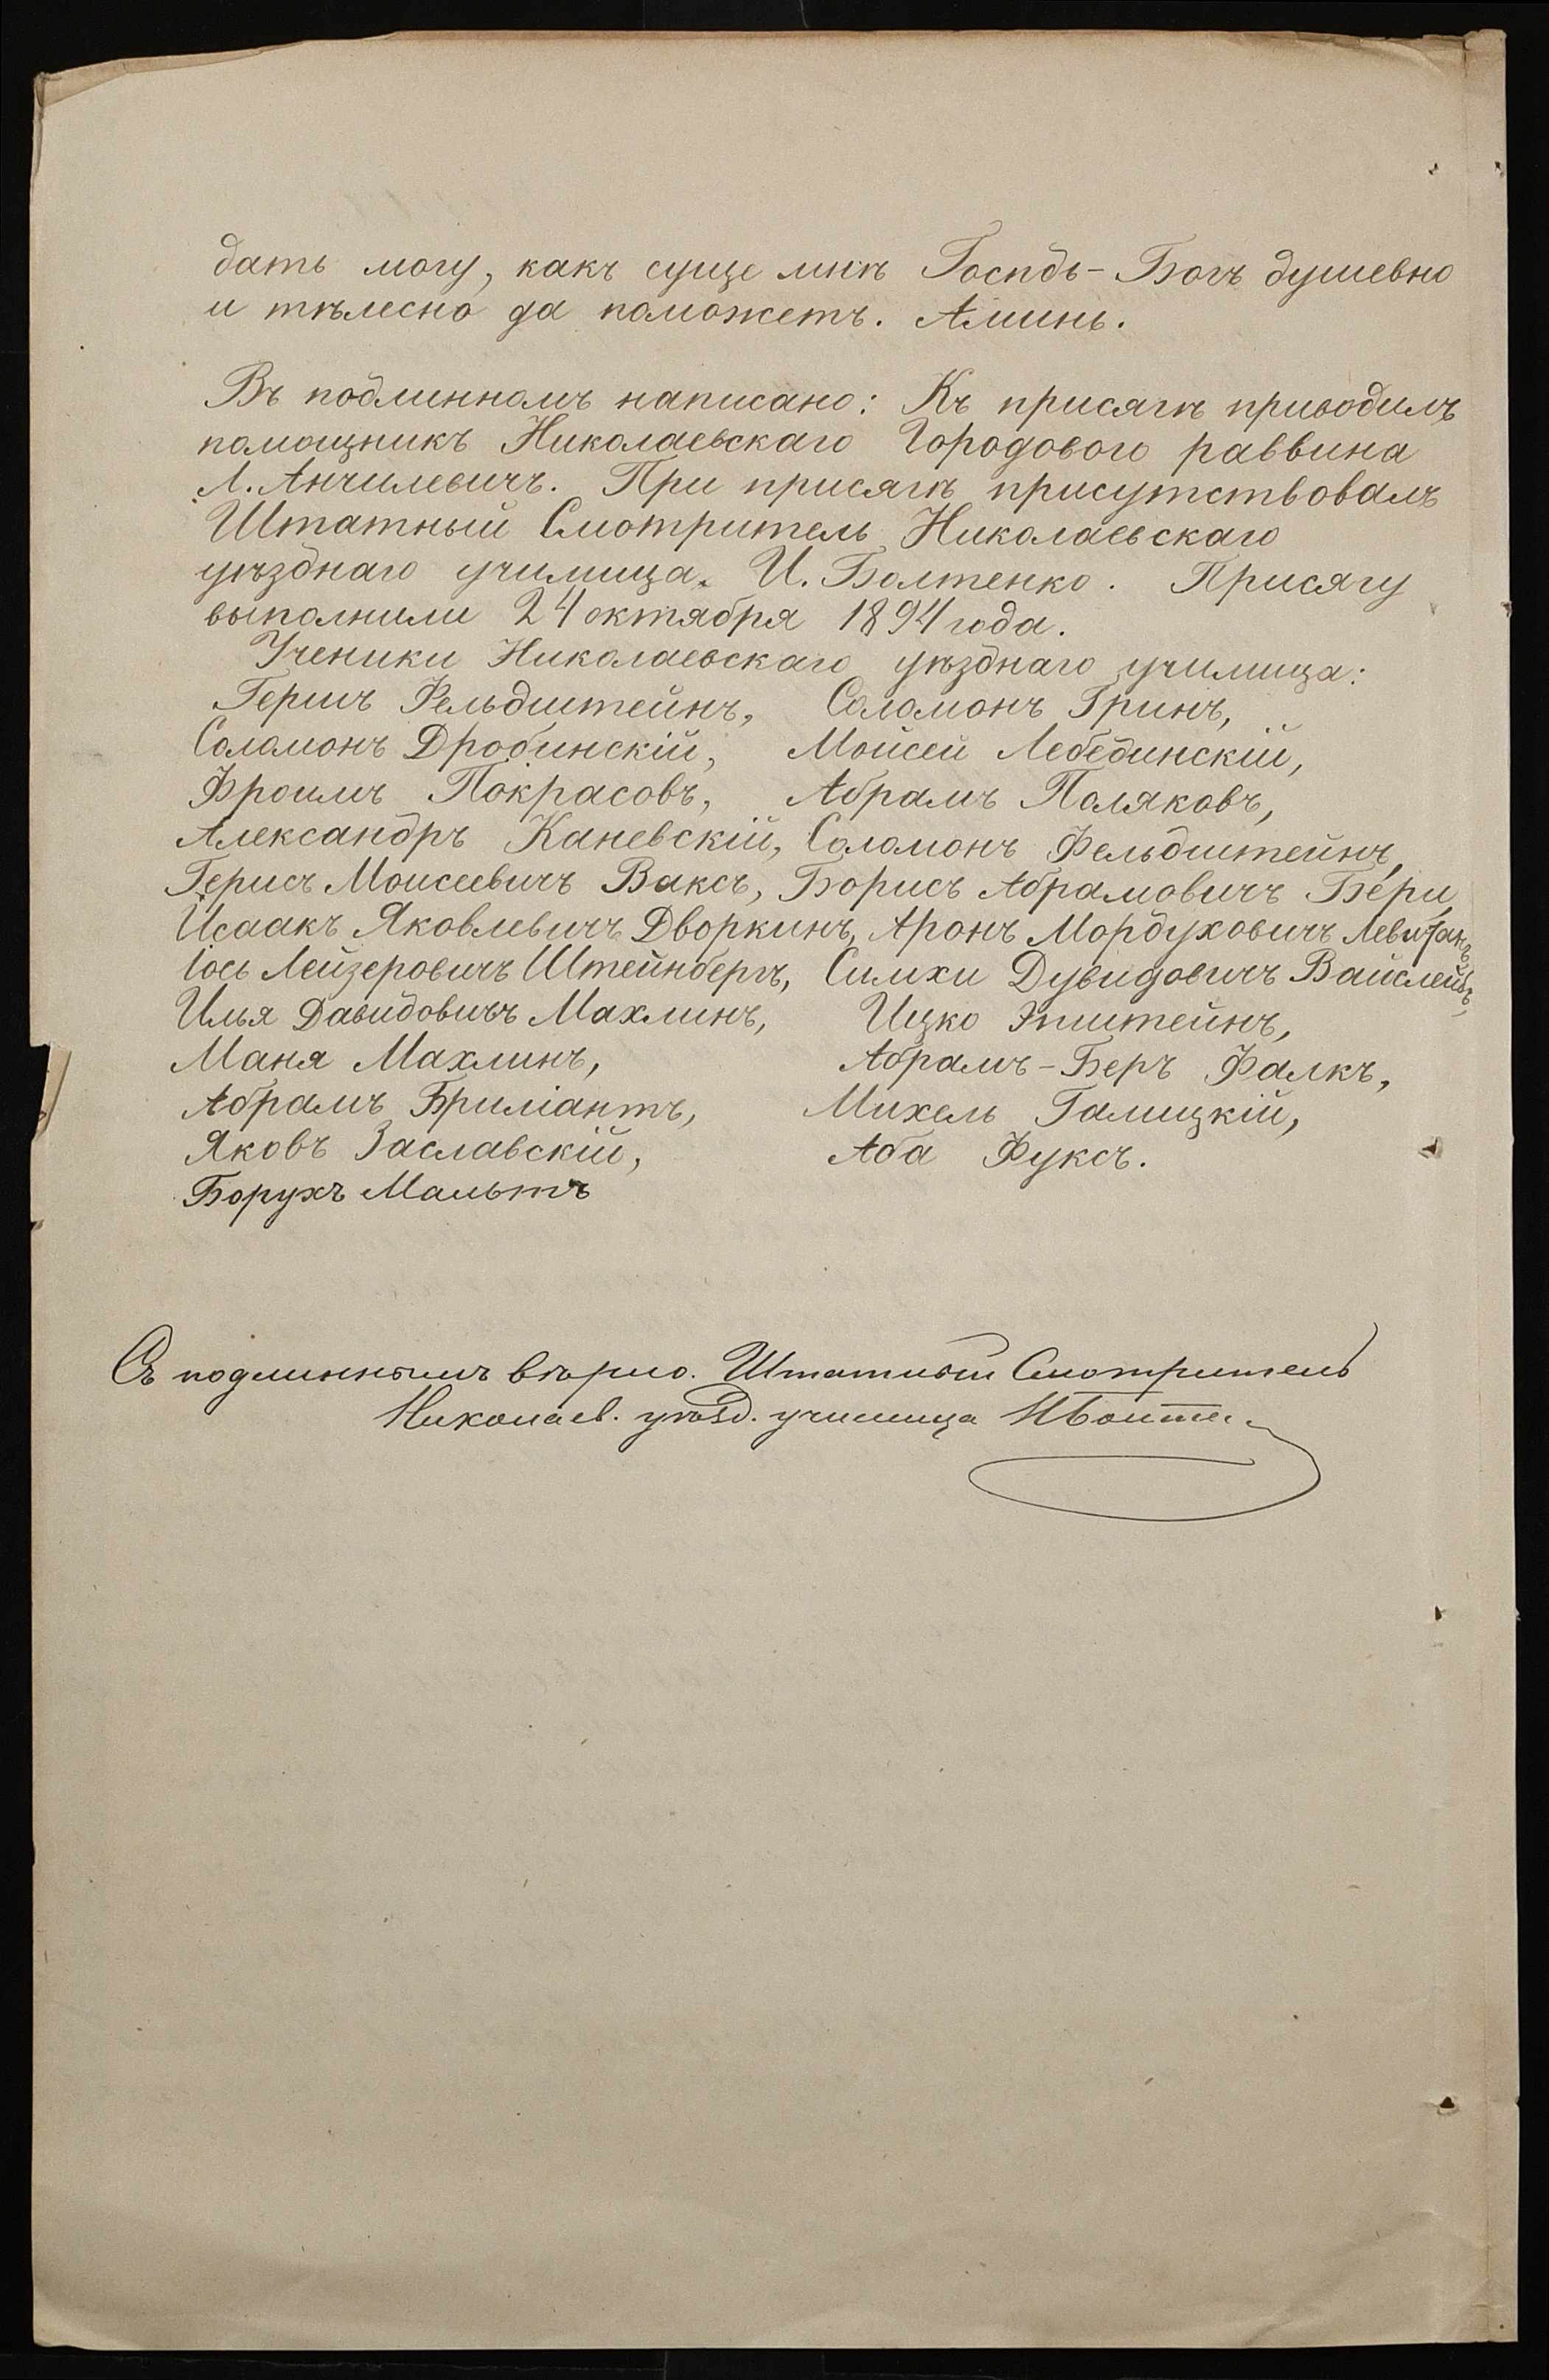 дать могу, какъ суще мнѣ Госпдь-Богъ душевно
и тѣлесно да поможетъ. Аминь.
Въ подлинномъ написано: Къ присягѣ приводилъ
помощникъ Николаевскаго Городового раввина
Л. Анчилевичъ. При присягѣ присутствовалъ
Штатный Смотритель Николаевскаго
уѣзднаго училища. И. Болтенко. Присягу
выполнили 24 октября 1894 года.
Ученики Николаевскаго уѣзднаго училища:
Гершъ Фельдштейнъ, Соломонъ Гринъ,
Соломонъ Дробинскій, Мойсей Лебединскій,
Фроимъ Покрасовъ, Абрамъ Поляковъ,
Александръ Каневскій, Соломонъ Фельдштейнъ,
Герисъ Моисеевичъ Ваксъ, Борисъ Абрамовичъ Бери,
Исаакъ Яковлевичъ Дворкинъ, Аронъ Мордуховичъ Левитанъ,
Іось Лейзеровичъ Штейнбергъ, Симхи Дувидовичъ
Илья Давидовичъ Махлинъ, Ицко Эпштейнъ,
Маня Махлинъ, Абрамъ-Беръ Фалкъ,
Абрамъ Бриліантъ, Михель Галицкій,
Яковъ Заславскій, Аба Фуксъ.
Борухъ Мальтъ
Съ подлиннымъ вѣрно. Штатный Смотритель
Николаев. уѣзд. училища